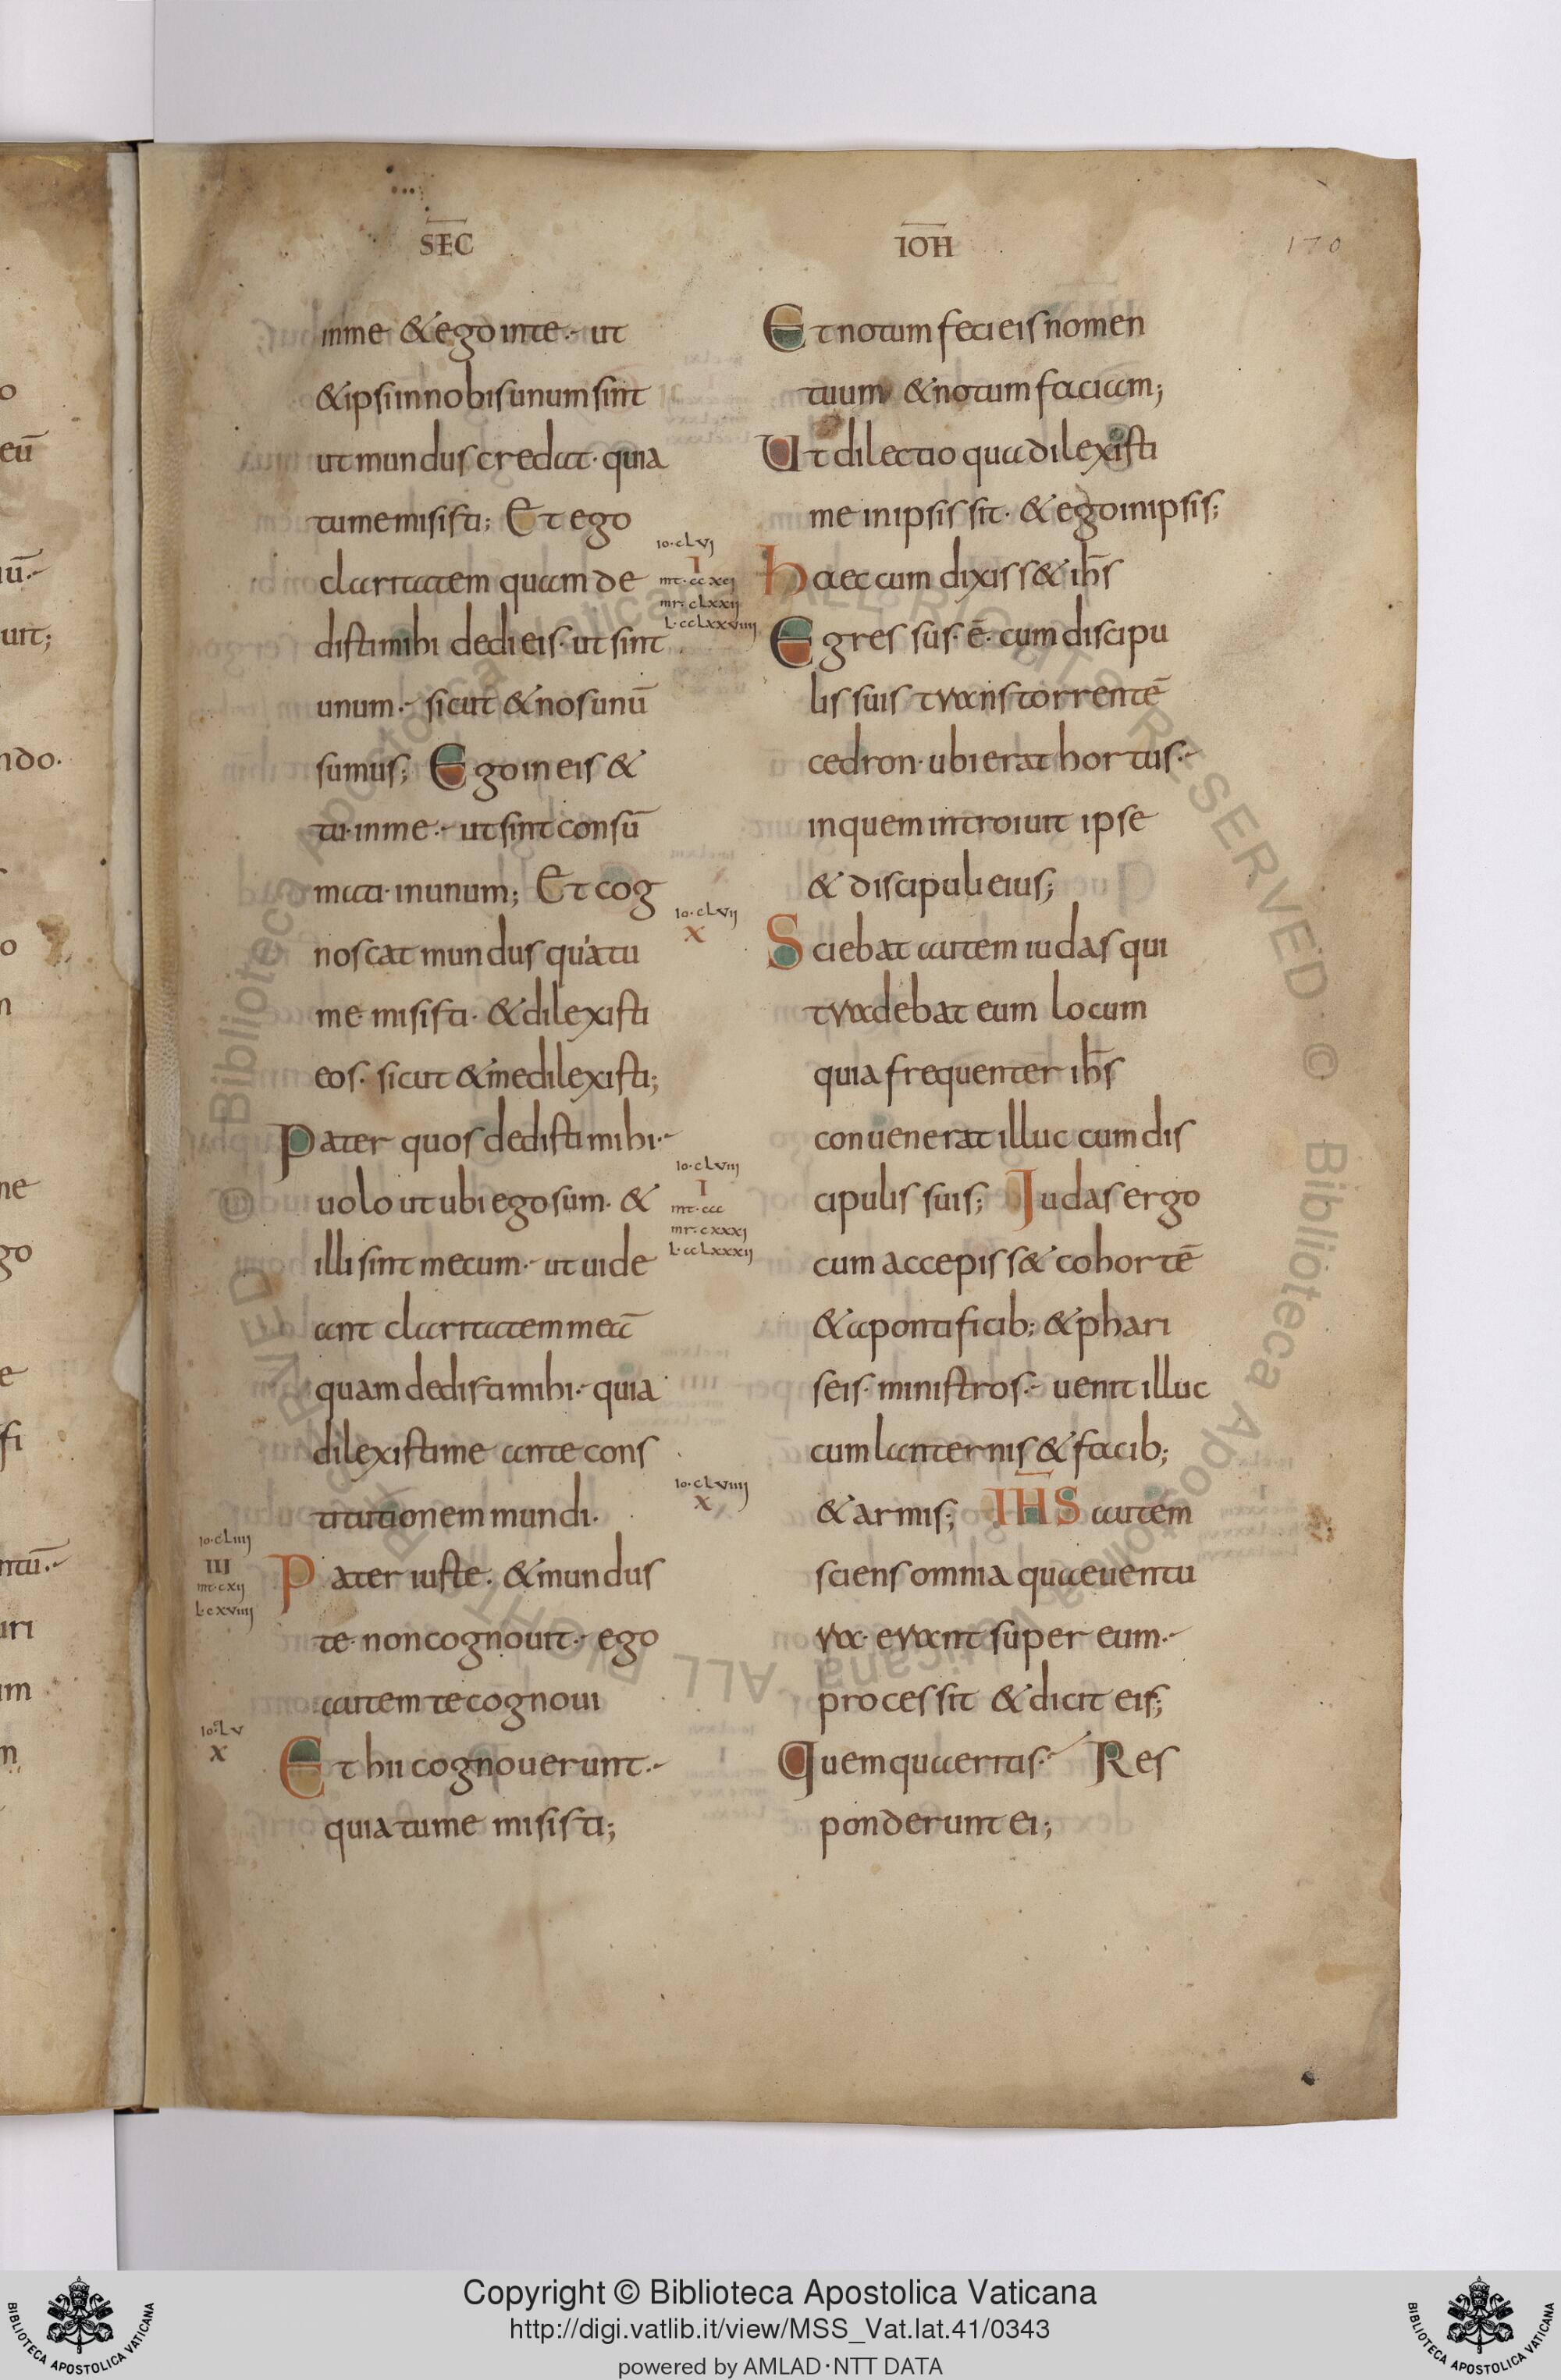 SEC̅
IOH̅
170
inme & ego inte. ut
& ipsi innobis unum sint
ut mundus credat. quia
tume misisti; Et ego
claritatem quam de
disti mihi dedi eis. ut sint
unum. sicut & nos unū
sumus; Ego in eis &
tu. inme. ut sint consū
mati. in unum; Et cog
noscat mundus quia tu
me misisti. & dilexisti
eos. sicut & me dilexisti;
Pater quos dedisti mihi.
uolo ut ubi ego sum. &
illi sint mecum. ut uide
ant claritatem meā
quam dedisti mihi. quia
dilexisti me ante cons
titutionem mundi.
Pater iuste. & mundus
te non cognouit. ego
autem te cognoui
Et hii cognouerunt.
quia tu me misisti;
io.cLiiij
III
mt.cxij
L.cxviiij
io.cLv
X
io.cLvj
I
mt.ccxcj
mr.cLxxij
L.ccLxxviiij
io.cLvij
X
io.cLviij
I
mt.ccc
mr.cxxxj
L.ccLxxxij
io.cLviiij
X
Et notum feci eis nomen
tuum & notum faciam;
Ut dilectio qua dilexisti
me in ipsis sit. & ego in ipsis;
Haec cum dixiss& ih̅s
Egressus. ē. cum discipu
lis suis trans torrentē
cedron. ubi erat hortus.
in quem introiuit ipse
& discipuli eius;
Sciebat autem iudas qui
tradebat eum locum
quia frequenter ih̅s
conuenerat illuc cum dis
cipulis suis; Iudas ergo
cum accepiss& cohortē
& a pontificib; & phari
seis. ministros. uenit illuc
cum lanternis & facib;
& armis; IH̅S autem
sciens omnia quae uentu
ra. erant super eum.
processit & dicit eis;
Quem quaeritis. Res
ponderunt ei;
© Biblioteca Apostolica Vaticana ALL RIGHTS RESERVED © Biblioteca Apostolica Vaticana ALL RIGHTS RESERVED
Copyright © Biblioteca Apostolica Vaticana
http://digi.vatlib.it/view/MSS_Vat.lat.41/0343
powered by AMLAD·NTT DATA
BIBLIOTECA APOSTOLICA VATICANA
BIBLIOTECA APOSTOLICA VATICANA